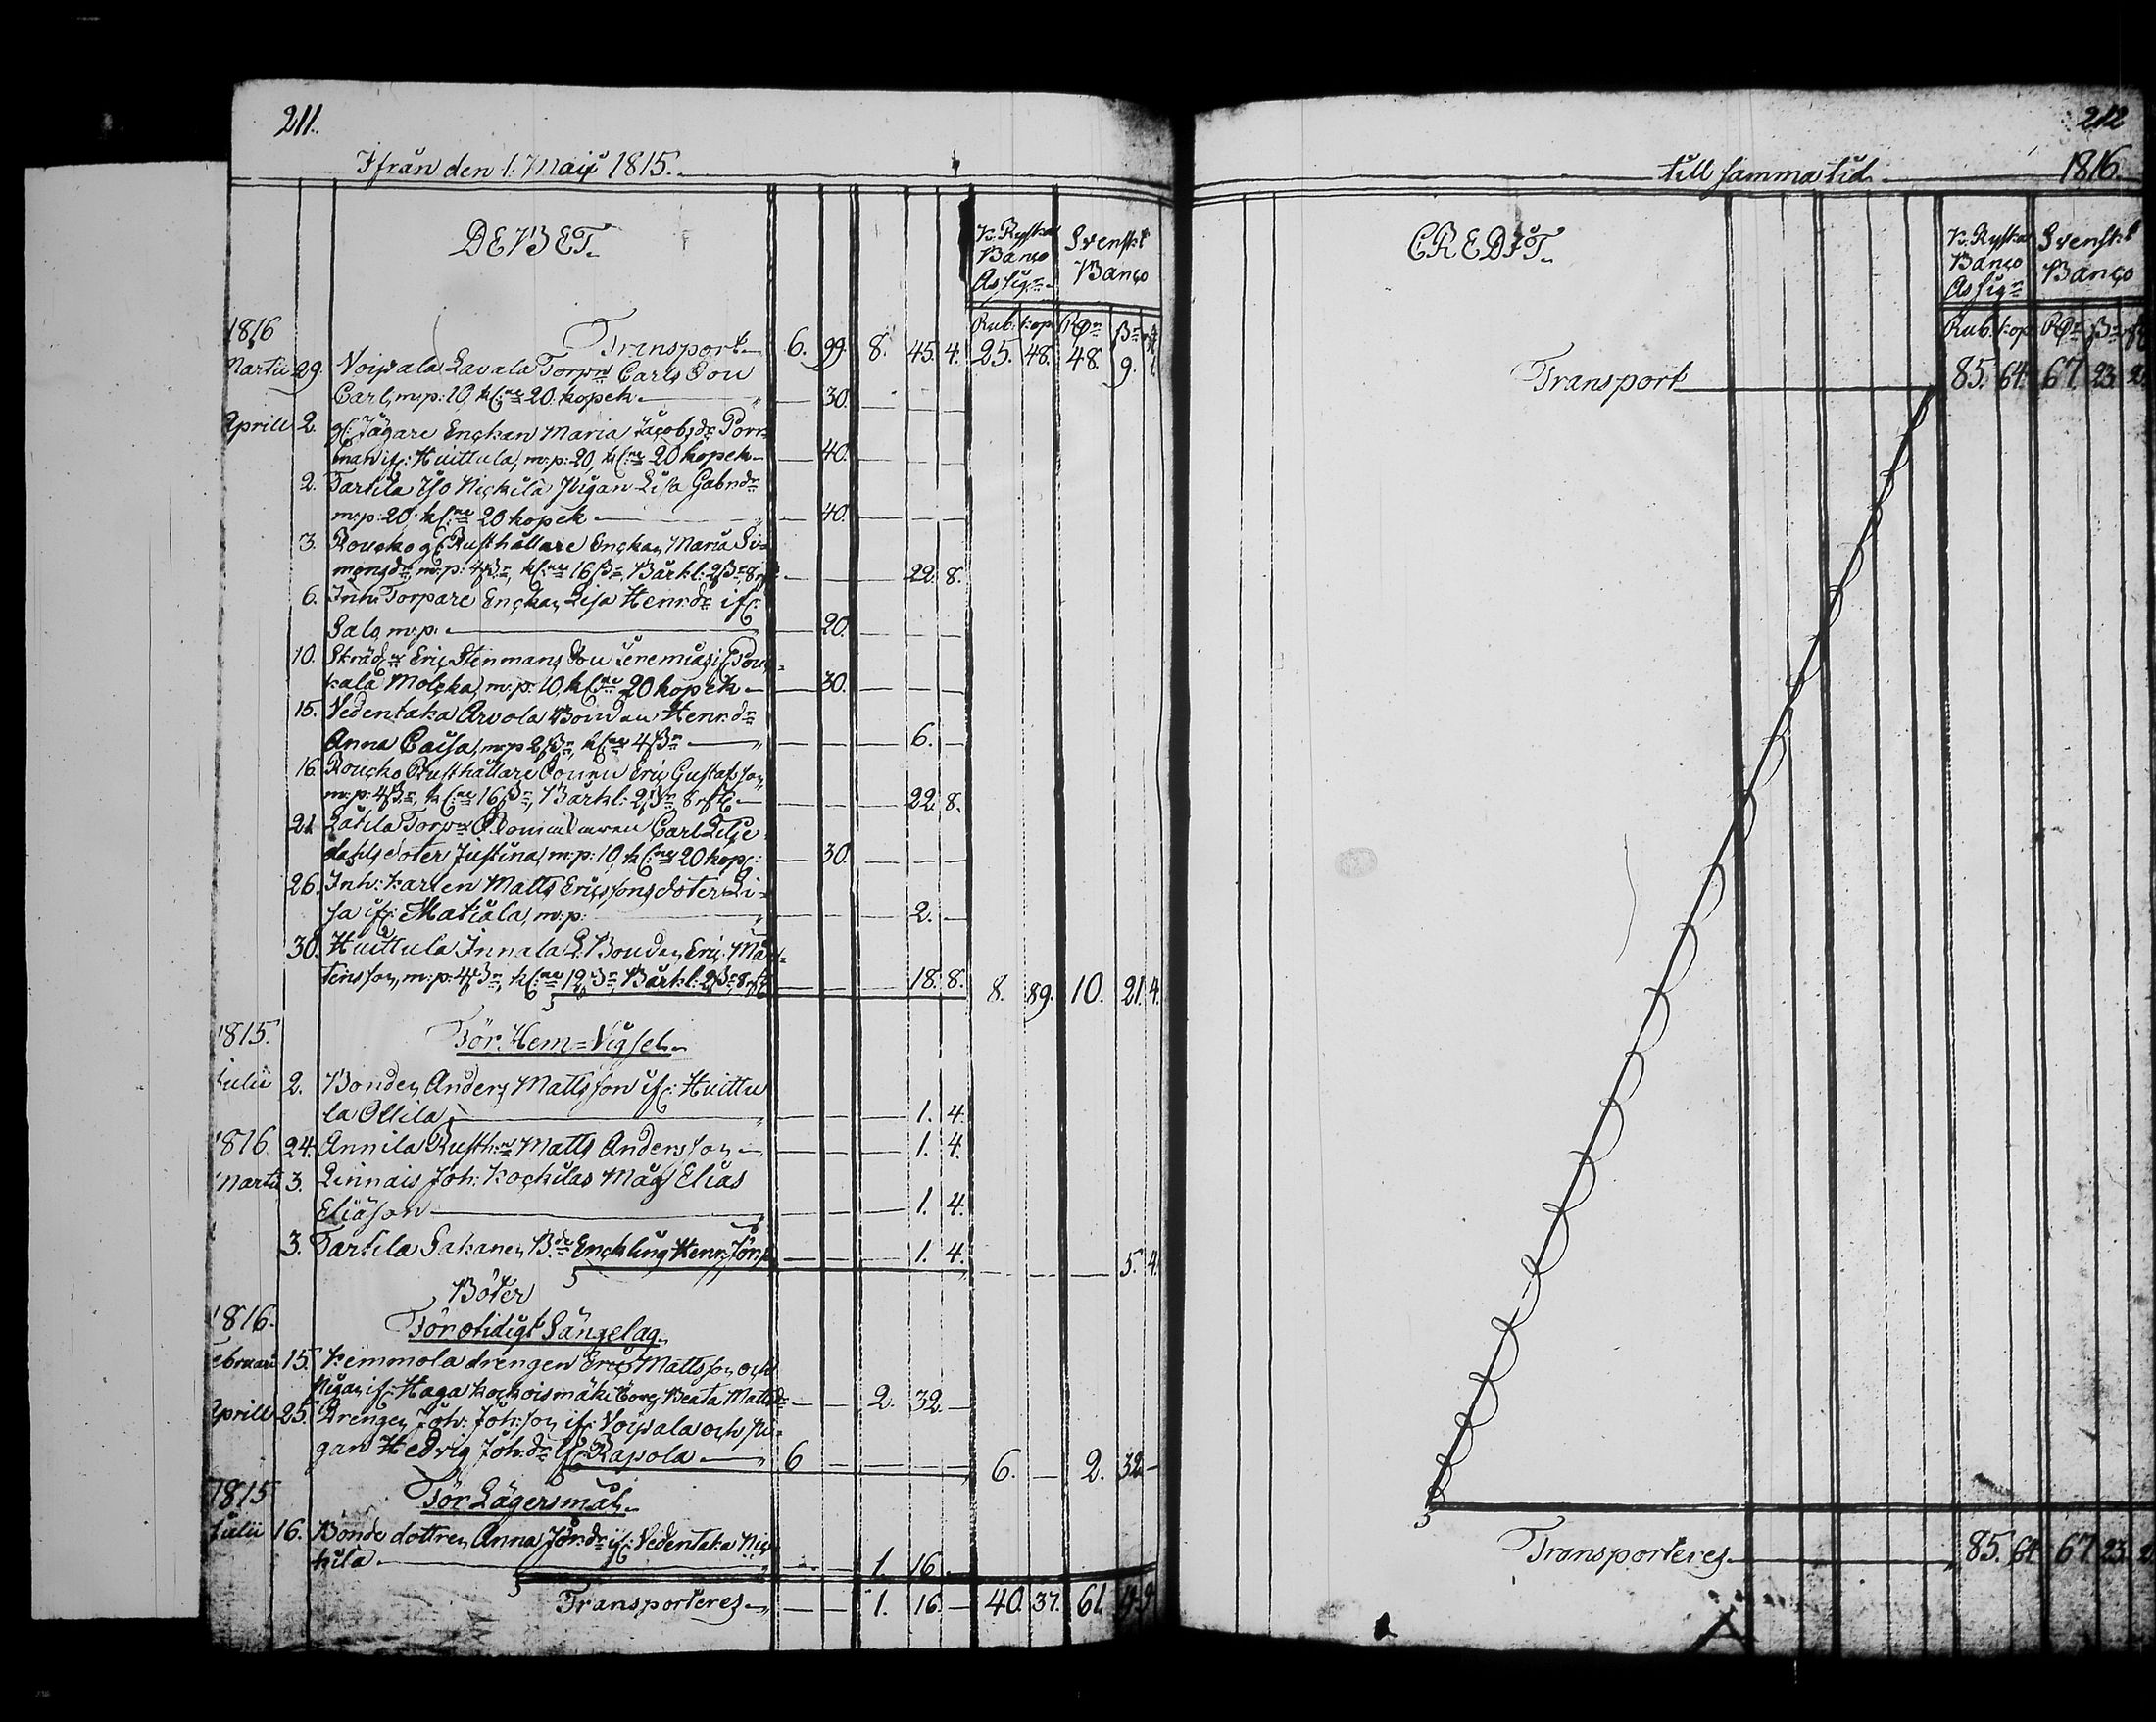 211.
Ifrån den 1. Maji 1815.
DEBET.
R. Ryska Banco Assign. Svenskt Banco
Rub. kop. Rdr ßr
1816 Transport 6. 99. 8. 45. 4. 25. 48. 48. 9.
Martii 29. Voipala Lavala Torpn Carls Son
Carl, m:p: 10, kl:ne 20 kopek 30.
Aprill 2. gl: Jägare Enckan Maria Jacobsdr Porr
man if: Huittula, m:p: 20, kl:ne 20 kopek 40.
2. Tarkila Iso Nickilä Pigan Lisa Gabr.dr
m:p: 20 kl:ne 20 kopek 40.
3. Roucko gl: Rusthållare Enckan Maria Si-
monsdr, m:p: 4ßr, kl:ne 16ßr, Bårkl: 2ßr 8 22. 8.
6. Inh: Torpare Enckan Lisa Henr.dr if:
Salo, m:p: 20.
10. Skräd:r Eric Stenmans Son Jeremias if:
kala Molcka, m:p: 10, kl:ne 20 kopek 30.
15. Vedentaka Arvola Bondens Henr.dr
Anna Caisa, m:p 2ßr, kl:ne 4ßr 6.
16. Roucko Rusthållare Sonen Eric Gustafsson
m:p: 4ßr, kl:ne 16ßr, Bårkl: 2ßr 8 22. 8.
21. Torpn Carl Lilje
dahls doter Justina, m:p: 10, kl:ne 20 kop: 30.
26. Inh: karlen Matts Ericssons doter Li-
sa if: Matiala, m:p: 2.
30. Huittula Innala L. Bonden Eric Mår-
tensson, m:p: 4ßr, kl:ne 12ßr, Bårkl: 2ßr 8 18. 8. 8. 89. 10. 21. 4.
1815. För Hem=Vigsel
Julii 2. Bonden Anders Mattsson if: Huittu
la Ollila 1. 4.
1816. 24. Annila Rusth:n Matts Andersson 1. 4.
Martii 3. Linnais Joh: Kockilas Måg Elias
Eliäson 1. 4.
3. Tarkila Sakanen B:de Enckling Henr: 1. 4. 5. 4.
Böter
1816. För otidigt Sängelag
Februari 15. Kemmola drengen Eric Mattsson och
Pigan if: Haga Kockoismäki Beata Mattsdr 2. 32.
Aprill 25. Drengen Joh: Joh:son if: Voipala och Pi-
gan Hedvig Joh.dr if: Rapola 6 6. 2. 32.
1815 För Lägersmål
Julii 16. Bonde dottren Anna Jör.dr if: Vedentaka Nic
kilä 1. 16
Transporteres 1. 16 40. 37. 61.
212
till samma tid 1816.
CREDIT.
R. Ryska Banco Assign Svenskt Banco
Rub. kop. Rdr ßr
Transport 85. 64. 67. 23.
Transporteres 85. 64 67. 23.